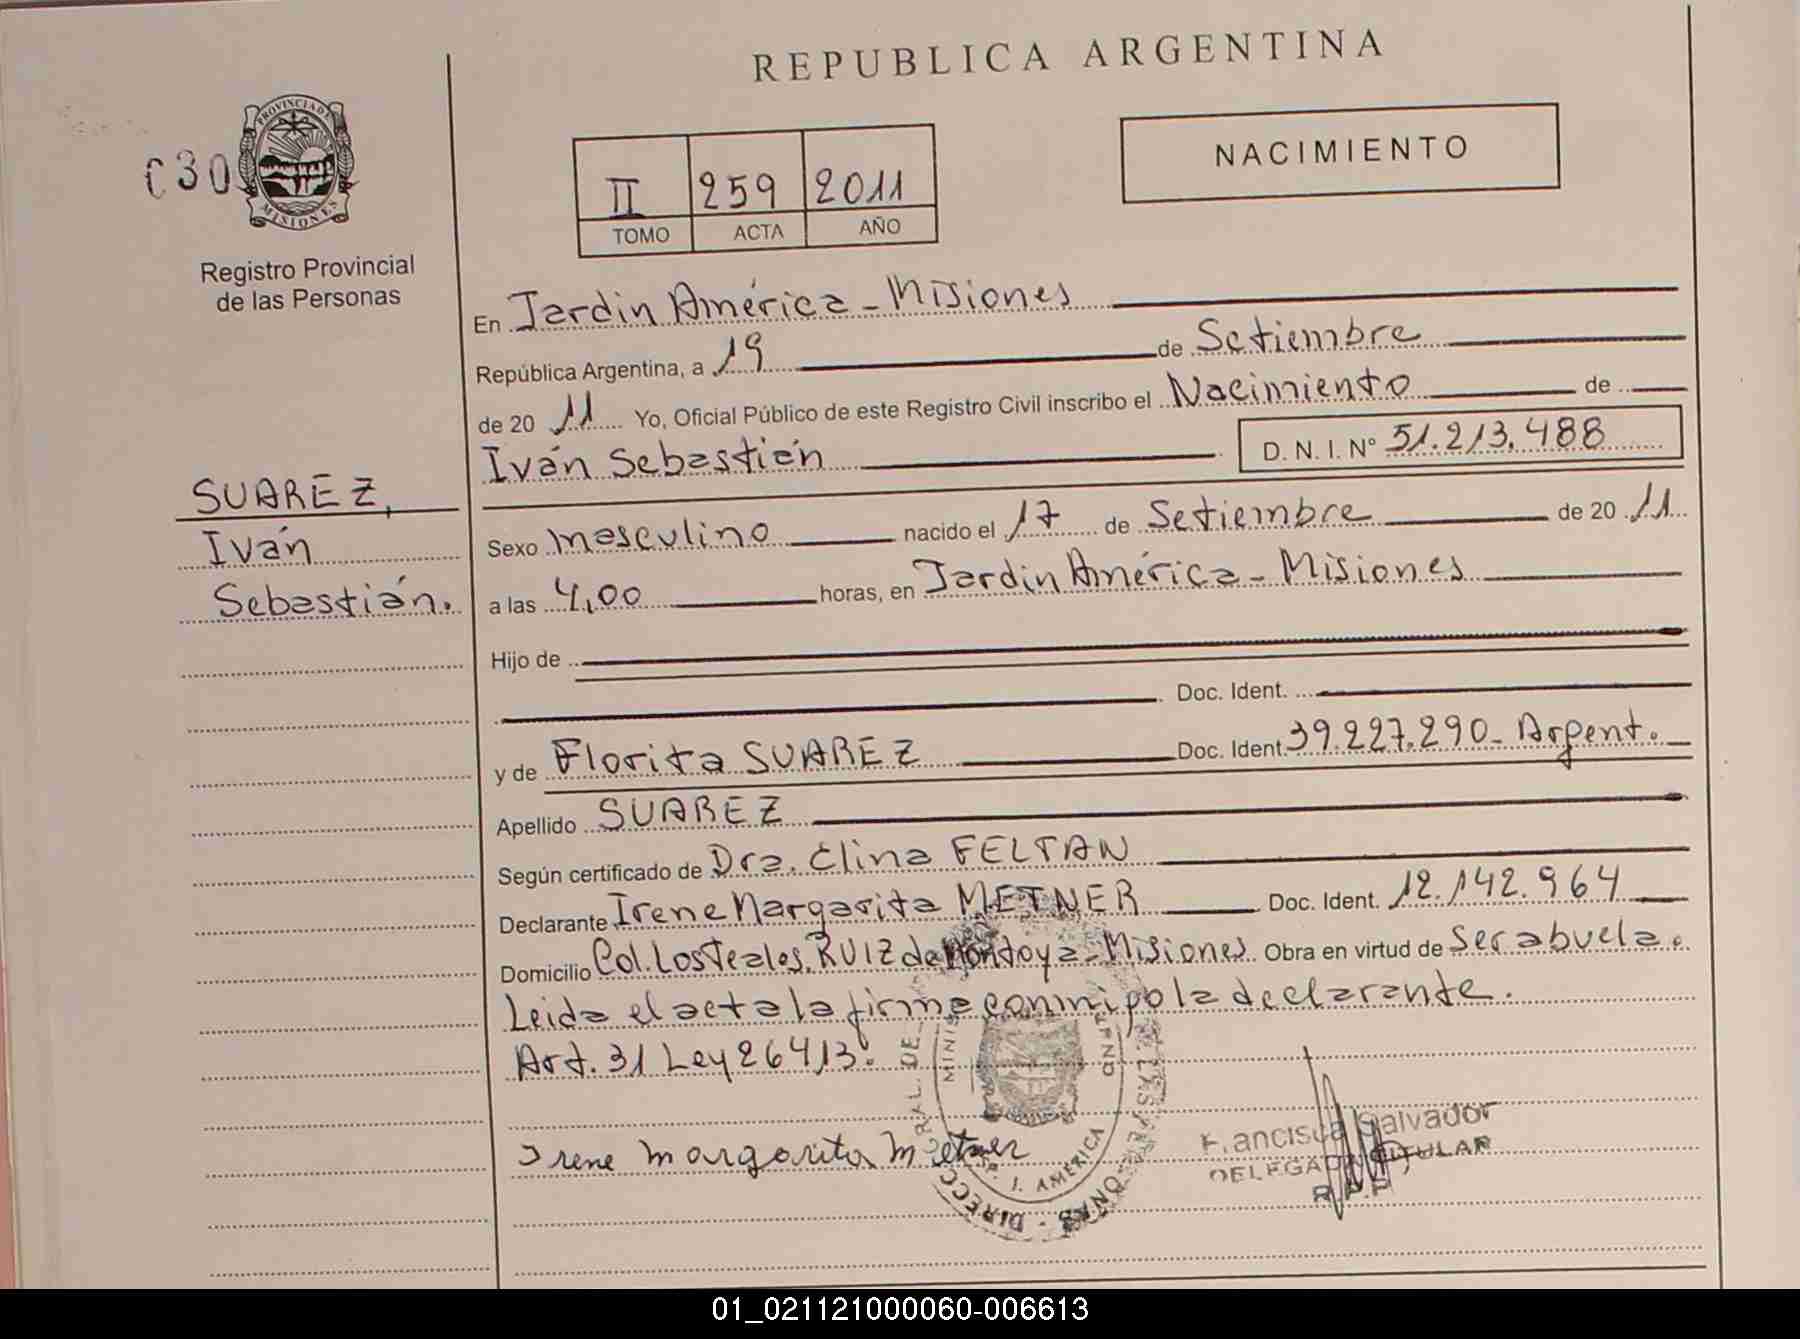 REPUBLICA ARGENTINA
C30
PROVINCIA DE MISIONES
Registro Provincial
de las Personas
II 259 2011
TOMO ACTA AÑO
NACIMIENTO
En Jardin América - Misiones
República Argentina, a 19 de Setiembre
de 20 11 Yo, Oficial Público de este Registro Civil inscribo el Nacimiento de
Iván Sebastián D. N. I. Nº 51.213.488
SUAREZ,
Iván
Sebastián.
Sexo masculino nacido el 17 de Setiembre de 20 11
a las 4,00 horas, en Jardin América - Misiones
Hijo de
Doc. Ident.
y de Florita SUAREZ Doc. Ident. 39.227.290- Argent.
Apellido SUAREZ
Según certificado de Dra. Elina FELTAN
Declarante Irene Margarita METNER Doc. Ident. 12.142.964
Domicilio Col. Los Teales, RUIZ de Montoya - Misiones Obra en virtud de Ser abuela.
Leida el acta la firma conmigo la declarante.
Art. 31 Ley 26413.
Irene Margarita Metner
J. AMERICA
Francisca Salvador
DELEGADA TITULAR
R.P.P
01_021121000060-006613